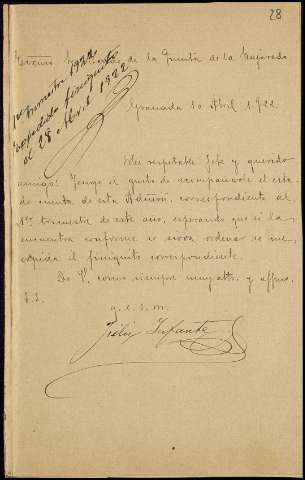 28
1er trimestre 1922
Expedido finiquito
el 28 Abril 1922
de la Quinta de la Alquería
Granada 10 Abril 1922.
Muy respetable Jefe y querido
amigo: Tengo el gusto de acompañarle el esta
de cuenta de esta Admon, correspondiente al
1er trimestre de este año, esperando que si la
encuentra conforme se sirva ordenar se me
expida el finiquito correspondiente.
De V. como siempre muy atto. y affmo.
S. S.
q. e. s. m.
Félix Infante